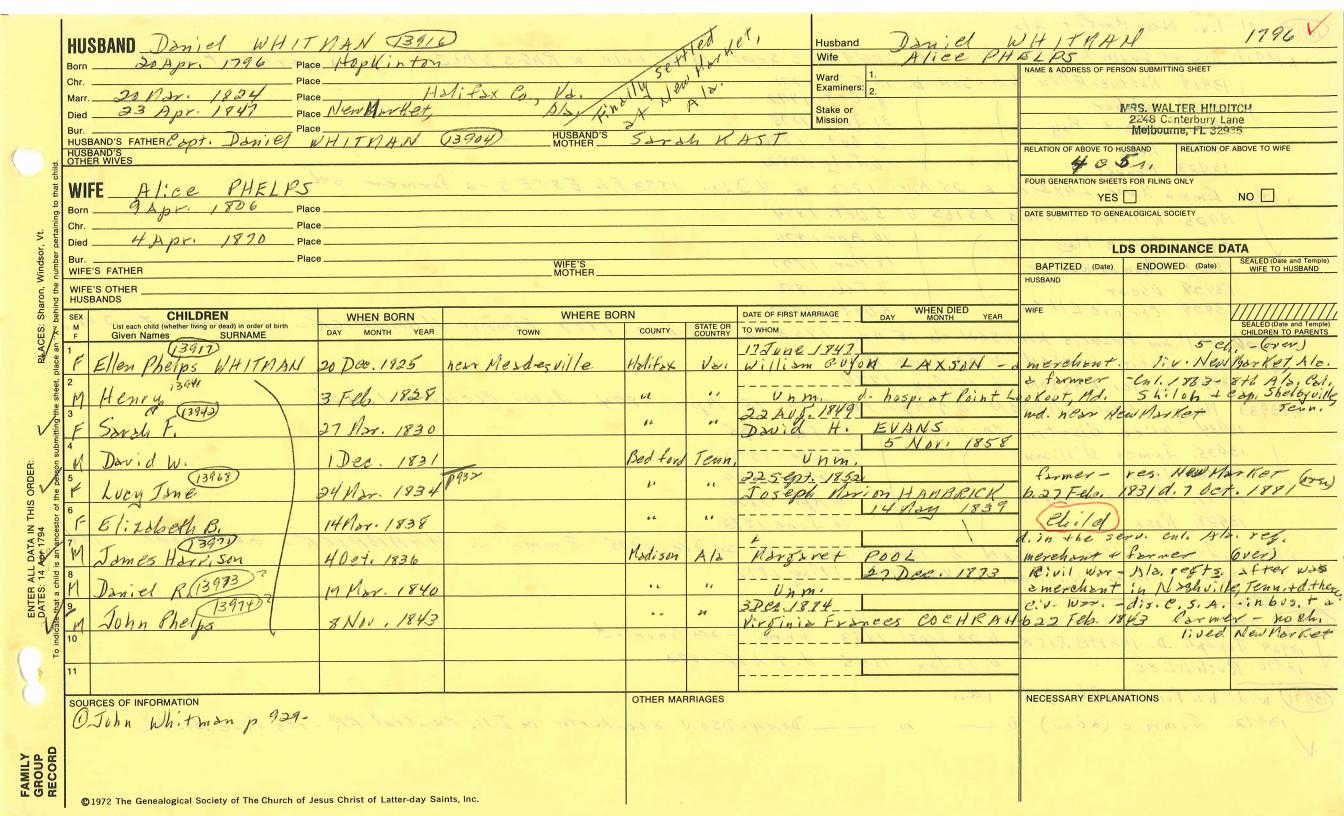 HUSBAND Daniel WHITMAN 13916
Born 20 Apr. 1796 Place Hopkinton
Chr. Place
Marr. 20 Mar. 1824 Place Halifax Co., Va.
Died 23 Apr. 1847 Place New Market, Ala.
Bur. Place
Finally settled
at New Market,
Ala.
HUSBAND'S FATHER Capt. Daniel WHITMAN 13904 HUSBAND'S MOTHER Sarah KAST
HUSBAND'S OTHER WIVES
WIFE Alice PHELPS
Born 9 Apr. 1806 Place
Chr. Place
Died 4 Apr. 1870 Place
Bur. Place
WIFE'S FATHER WIFE'S MOTHER
WIFE'S OTHER HUSBANDS
Husband Daniel WHITMAN 1796
Wife Alice PHELPS
Ward Examiners: 1. 2.
Stake or Mission
NAME & ADDRESS OF PERSON SUBMITTING SHEET
MRS. WALTER HILDITCH
2248 Canterbury Lane
Melbourne, FL 32935
RELATION OF ABOVE TO HUSBAND RELATION OF ABOVE TO WIFE
FOUR GENERATION SHEETS FOR FILING ONLY
YES NO
DATE SUBMITTED TO GENEALOGICAL SOCIETY
LDS ORDINANCE DATA
BAPTIZED (Date) ENDOWED (Date) SEALED (Date and Temple) WIFE TO HUSBAND
HUSBAND
WIFE
SEALED (Date and Temple) CHILDREN TO PARENTS
SEX M F CHILDREN WHEN BORN WHERE BORN DATE OF FIRST MARRIAGE WHEN DIED
List each child (whether living or dead) in order of birth
Given Names SURNAME DAY MONTH YEAR TOWN COUNTY STATE OR COUNTRY TO WHOM DAY MONTH YEAR
13917 17 June 1847 5 ch. - (over)
1 F Ellen Phelps WHITMAN 20 Dec. 1925 near Meadesville Halifax Va. William Guyon LAXSON - a merchant. liv. New Market Ala.
13941 a farmer - Enl. 1863 - 8th Ala. Cal.
2 M Henry 3 Feb. 1828 " " Unm. d. hosp. at Point Lookout, Md. Shiloh & cap. Shelbyville, Tenn.
13942 22 Aug. 1849
3 F Sarah F. 27 Mar. 1830 " " David H. EVANS md. near New Market
5 Nov. 1858
4 M David W. 1 Dec. 1831 Bedford Tenn. Unm.
13968 22 Sept. 1852 farmer - res. New Market (over)
5 F Lucy Jane 24 Mar. 1834 p932 " " Joseph Marion HAMBRICK b. 27 Feb. 1831 d. 7 Oct. 1881
14 May 1839
6 F Elizabeth B. 14 Mar. 1838 " " Child
13971 d. in the serv. enl. Ala. reg.
7 M James Harrison 4 Oct. 1836 Madison Ala Margaret POOL merchant & farmer (over)
27 Dec. 1873 Civil war - Ala. regts. after was
8 M Daniel R. 13973? 17 Mar. 1840 " " Unm. a merchant in Nashville, Tenn. & d. there
13974? 3 Dec. 1884 civ. war. - dis. C.S.A. - in bus. & a
9 M John Phelps 8 Nov. 1843 " " Virginia Frances COCHRAN b. 22 Feb. 1843 farmer - no ch.
10 lived New Market
11
SOURCES OF INFORMATION OTHER MARRIAGES NECESSARY EXPLANATIONS
① John Whitman p 929-
©1972 The Genealogical Society of The Church of Jesus Christ of Latter-day Saints, Inc.
FAMILY GROUP RECORD
ENTER ALL DATA IN THIS ORDER:
DATES: 14 Apr 1794 PLACES: Sharon, Windsor, Vt.
To indicate that a child is an ancestor of the person submitting the sheet, place an "X" behind the number pertaining to that child.